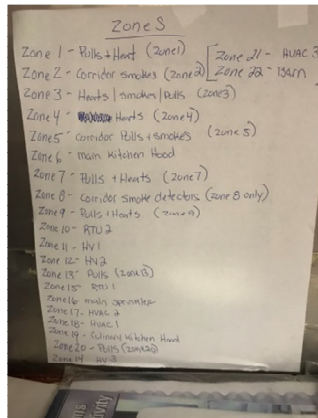 Zones
Zone 1 - Pulls + Heat (Zone 1) [Zone 21 - HVAC 3
Zone 2 - Corridor smokes (Zone 2) [Zone 22 - Barn
Zone 3 - Heats | smokes | Pulls (Zone 3)
Zone 4 - Heats (Zone 4)
Zone 5 - corridor Pulls + smokes (Zone 5)
Zone 6 - main Kitchen Hood
Zone 7 - Pulls + Heats (Zone 7)
Zone 8 - Corridor smoke detectors (Zone 8 only)
Zone 9 - Pulls + Heats (Zone 9)
Zone 10 - RTU 2
Zone 11 - HV1
Zone 12 - HV2
Zone 13 - Pulls (Zone 13)
Zone 15 - RTU 1
Zone 16 - main sprinkler
Zone 17 - HVAC 2
Zone 18 - HVAC 1
Zone 19 - Culinary Kitchen Hood
Zone 20 - Pulls (Zone 20)
Zone 14 HV3